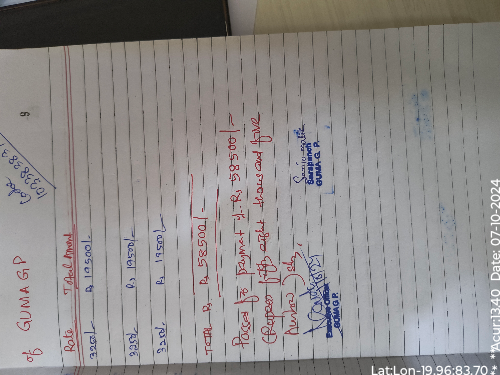 of GUMA GP
Rate Total Amount
325/- Rs 19500/-
325/- Rs 19500/-
325/- Rs 19500/-
TOTAL Rs Rs 58500/-
Passed for payment of Rs 58500/-
(Rupees fifty eight thousand five
hundred) only.
Sarapanch
GUMA G.P.
GUMA G.P.
LatLon-19.96:83.70
**Acum1340, Date: 07-10-2024